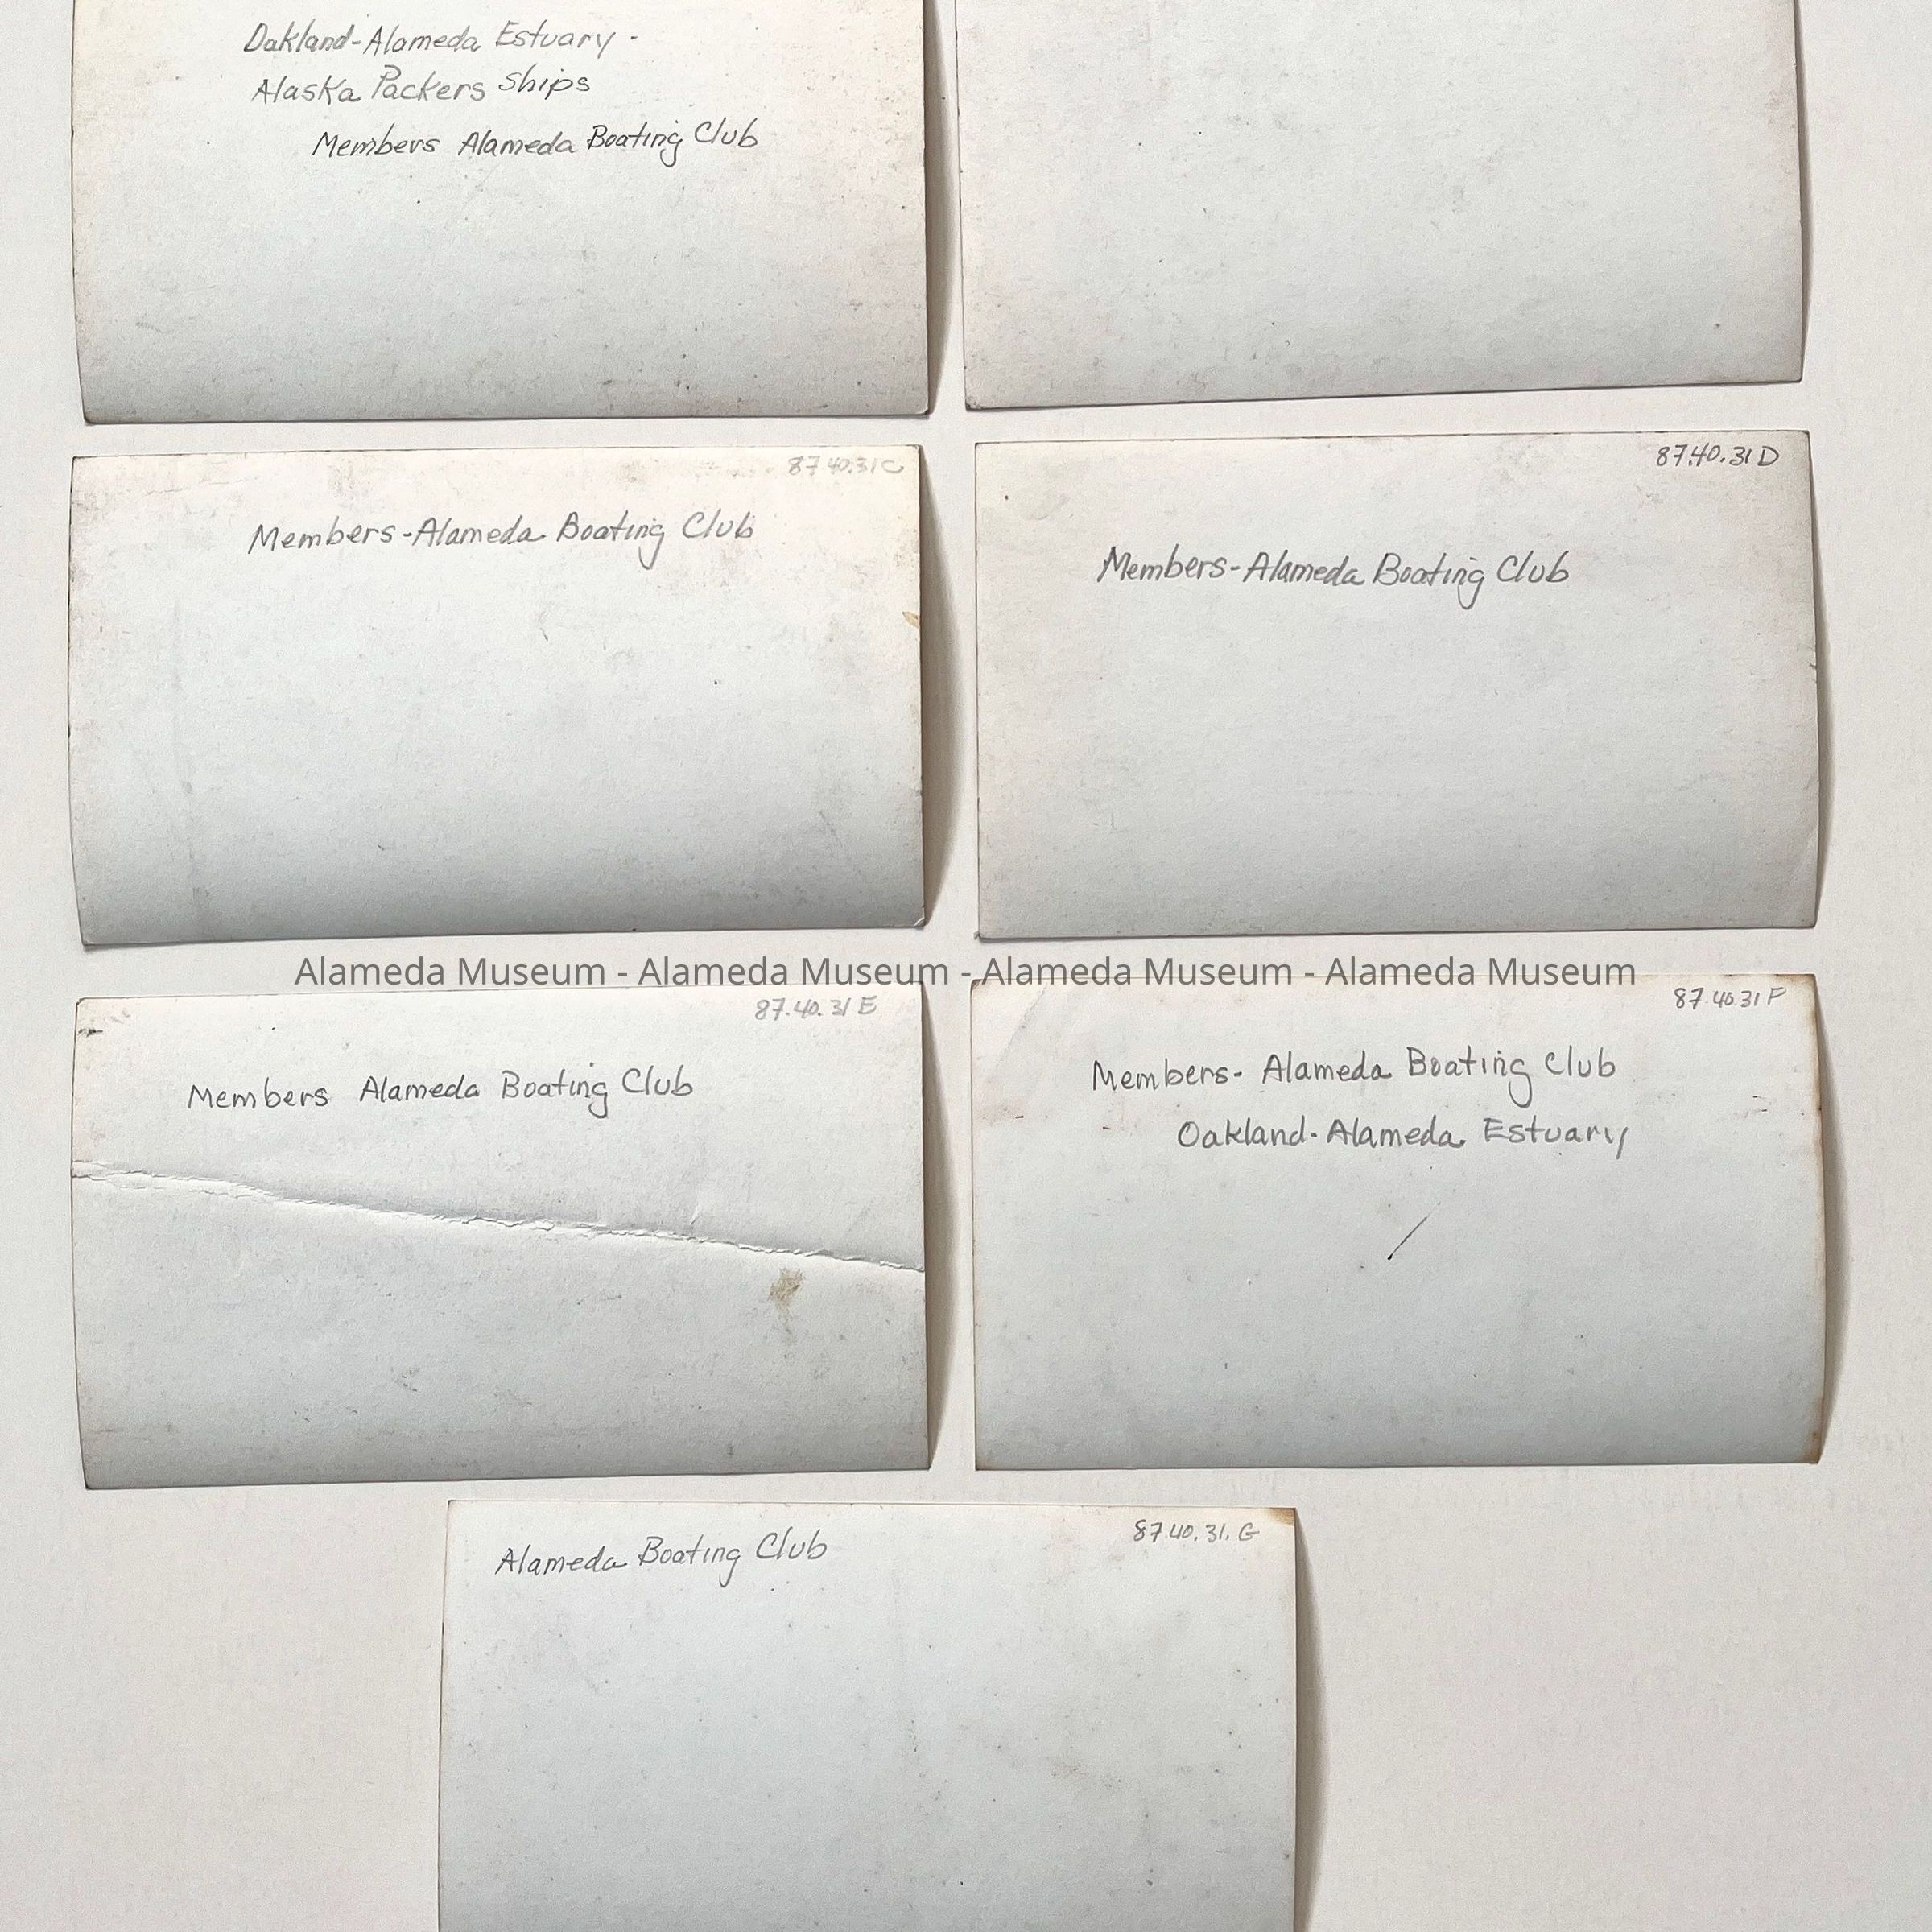 Oakland-Alameda Estuary -
Alaska Packers Ships
Members Alameda Boating Club
87.40.31C
Members-Alameda Boating Club
87.40.31 D
Members-Alameda Boating Club
Alameda Museum - Alameda Museum - Alameda Museum - Alameda Museum
87.40.31 E
Members Alameda Boating Club
87.40.31 F
Members- Alameda Boating Club
Oakland-Alameda Estuary
87.40.31.G
Alameda Boating Club